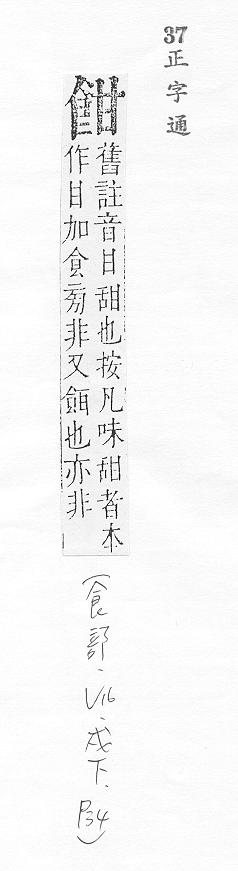 37
正字通
舊註音甘甜也按凡味甜者本
作甘加食旁非又餌也亦非
(食部、V16、戌下、P34)